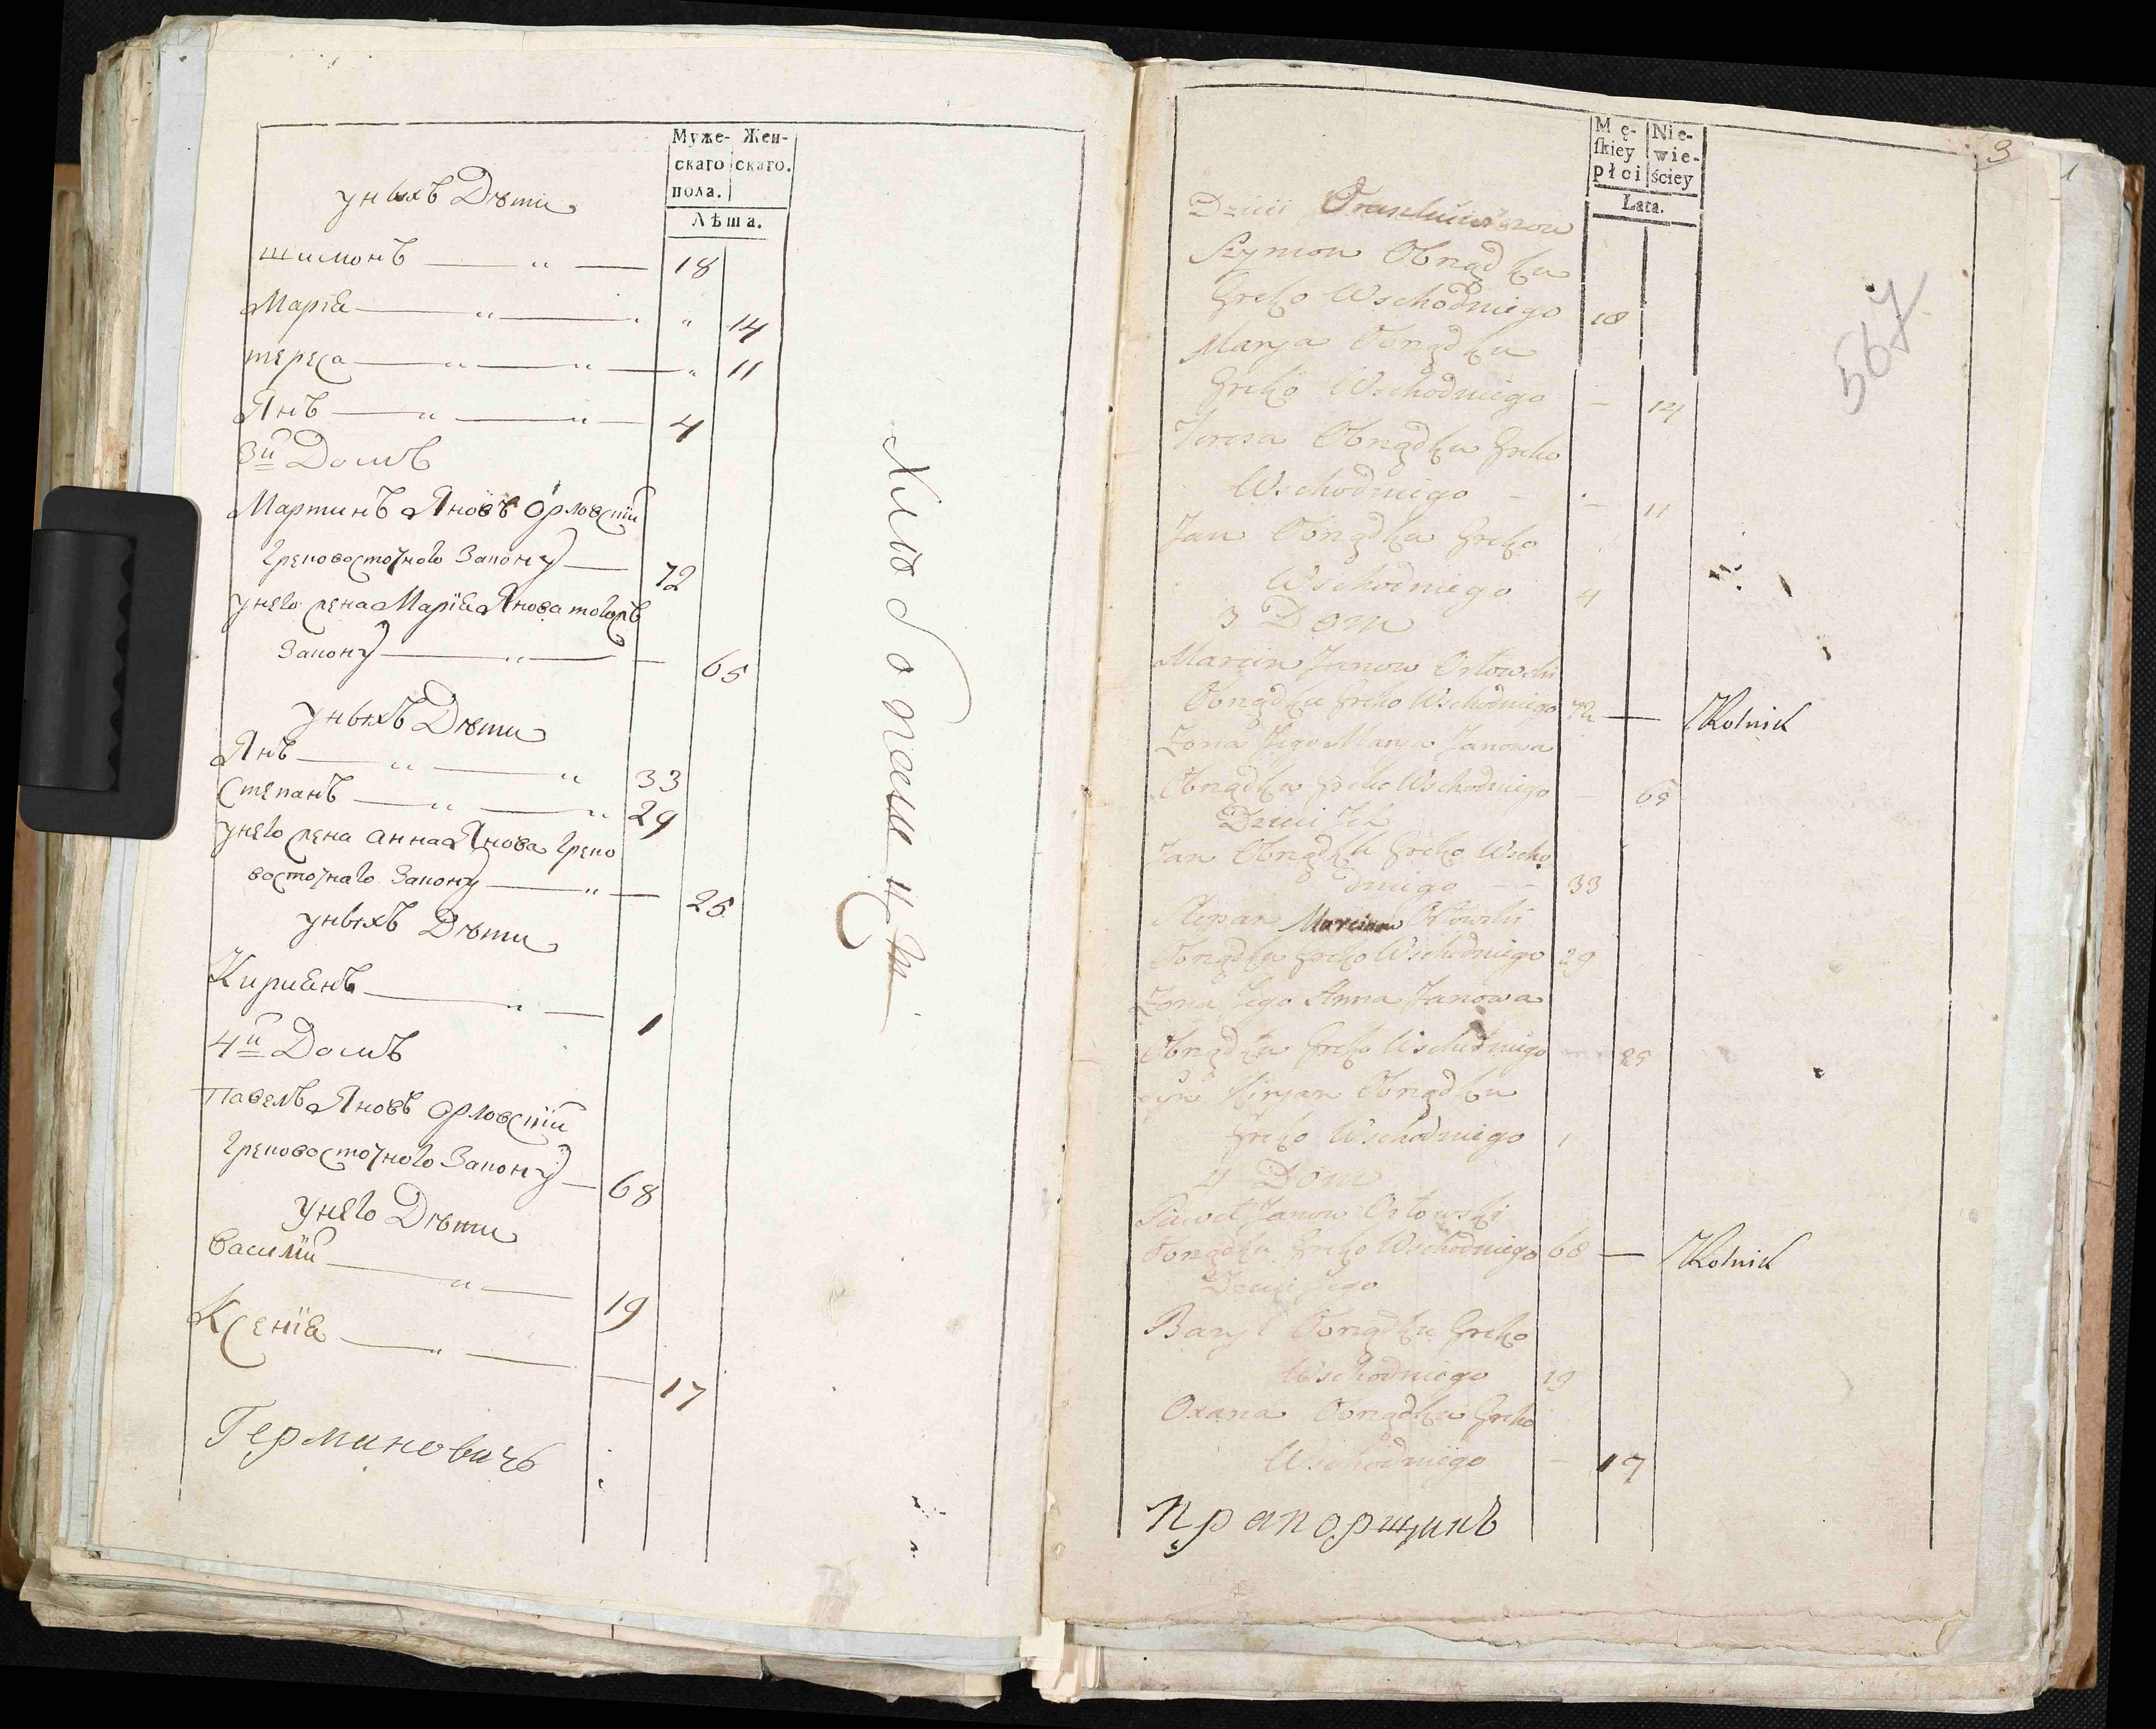 Муже-
скаго
пола.
Жен-
скаго.
Лѣта.
у ныхъ Дѣти
шимонъ — „ — 18
Марiя — „ — „ 14
тереса — „ — „ — „ 11
Янъ — „ — „ — 4
3й Домъ
Мартинъ Яновъ Орловскiй
Грековосточного Закону — 72
у него жена Марiя Янова тогожъ
Закону — „ — — 65
у ныхъ Дѣти
Янъ — „ — „ 33
Степанъ — „ — „ 29
у него жена анна Янова Греко
восточнаго Закону — „ — 25
у ныхъ Дѣти
Кириянъ — „ — 1
4й Домъ
Павелъ Яновъ Орловскiй
Грековосточного Закону — 68
у него Дѣти
Василiй — „ — 19
Ксенiя — „ — — 17
Германовичь
хлѣбопашцы
Mę-
ſkiey
płci
Nie-
wie-
ściey
Lata.
3
1
567
Dzieci
Szymon Obrządku
Greko Wschodniego 18
Marya Obrządku
Greko Wschodniego — 14
Teresa Obrządku Greko
Wschodniego - — 11
Jan Obrządku Greko
Wschodniego 4
3 Dom
Marcin Janow Orłowski
Obrządku Greko Wschodniego 72 — Rolnik
Zona Jego Marya Janowa
Obrządku Greko Wschodniego — 65
Dzieci Ich
Jan Obrządku Greko Wscho
dniego - - 33
Stepan Marcinow Orłowski
Obrządku Greko Wschodniego 29
Zona Jego Anna Janowa
Obrządku Greko Wschodniego 25
syn Kiryan Obrządku
Greko Wschodniego 1
4 Dom
Paweł Janow Orłowski
Obrządku Greko Wschodniego 68 — Rolnik
Dzieci Jego
Bazyl Obrządku Greko
Wschodniego 19
Oxana Obrządku Greko
Wschodniego — 17
Прапорщикъ